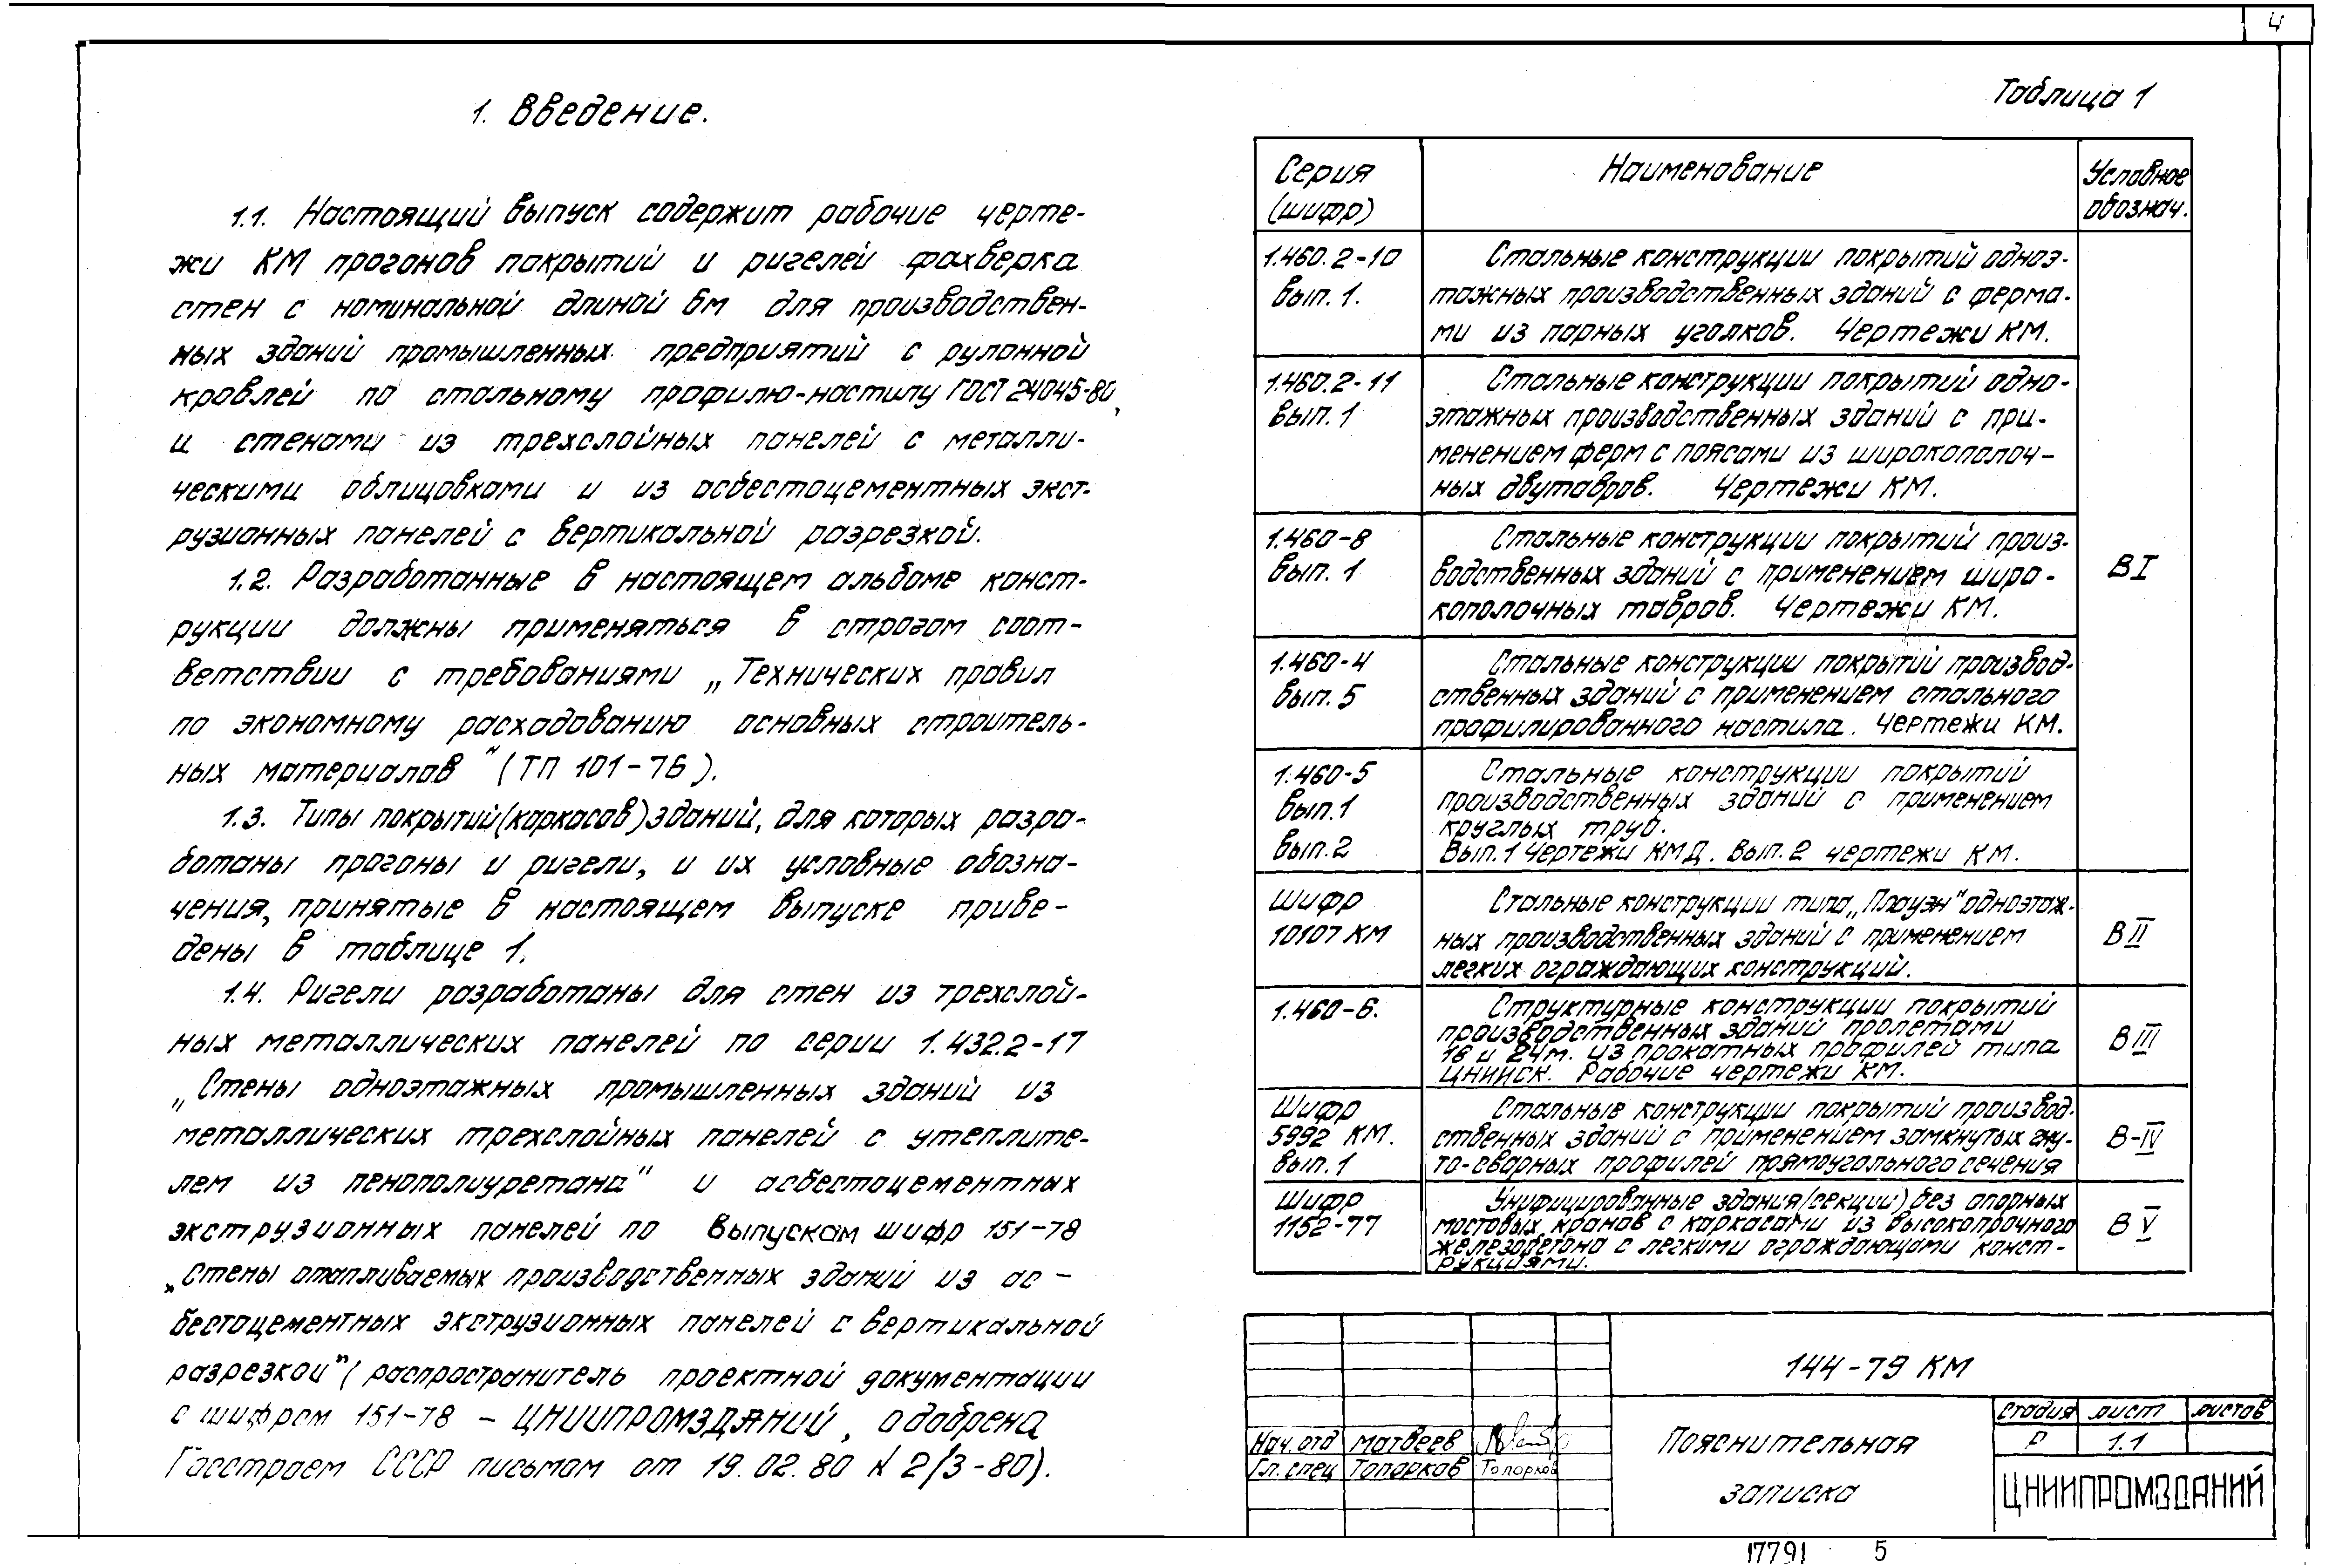 4
1. Введение.
1.1. Настоящий выпуск содержит рабочие черте-
жи КМ прогонов покрытий и ригелей фахверка
стен с номинальной длиной 6м для производствен-
ных зданий промышленных предприятий с рулонной
кровлей по стальному профилю-настилу ГОСТ 24045-80,
и стенами из трехслойных панелей с металли-
ческими облицовками и из асбестоцементных экст-
рузионных панелей с вертикальной разрезкой.
1.2. Разработанные в настоящем альбоме конст-
рукции должны применяться в строгом соот-
ветствии с требованиями „Технических правил
по экономному расходованию основных строитель-
ных материалов" (ТП 101-76).
1.3. Типы покрытий (каркасов) зданий, для которых разра-
ботаны прогоны и ригели, и их условные обозна-
чения, принятые в настоящем выпуске приве-
дены в таблице 1.
1.4. Ригели разработаны для стен из трехслой-
ных металлических панелей по серии 1.432.2-17
„Стены одноэтажных промышленных зданий из
металлических трехслойных панелей с утеплите-
лем из пенополиуретана" и асбестоцементных
экструзионных панелей по выпускам шифр 151-78
„Стены отапливаемых производственных зданий из ас-
бестоцементных экструзионных панелей с вертикальной
разрезкой" (распространитель проектной документации
с шифром 151-78 - ЦНИИПРОМЗДАНИЙ, одобрена
Госстроем СССР письмом от 19.02.80 N 2/3-80).
Таблица 1
Серия
(шифр)
Наименование
Условное
обознач.
1.460.2-10
вып. 1.
Стальные конструкции покрытий одноэ-
тажных производственных зданий с ферма-
ми из парных уголков. Чертежи КМ.
1.460.2-11
вып. 1
Стальные конструкции покрытий одно-
этажных производственных зданий с при-
менением ферм с поясами из широкополоч-
ных двутавров. Чертежи КМ.
1.460-8
вып. 1
Стальные конструкции покрытий произ-
водственных зданий с применением широ-
кополочных тавров. Чертежи КМ.
В I
1.460-4
вып. 5
Стальные конструкции покрытий производ-
ственных зданий с применением стального
профилированного настила. Чертежи КМ.
1.460-5
вып.1
вып.2
Стальные конструкции покрытий
производственных зданий с применением
круглых труб.
Вып.1 Чертежи КМД. Вып.2 чертежи КМ.
Шифр
10107 КМ
Стальные конструкции типа „Плауэн" одноэтаж-
ных производственных зданий с применением
легких ограждающих конструкций.
В II
1.460-6.
Структурные конструкции покрытий
производственных зданий пролетами
18 и 24м. из прокатных профилей типа
ЦНИИСК. Рабочие чертежи КМ.
В III
Шифр
5992 КМ.
вып. 1
Стальные конструкции покрытий производ-
ственных зданий с применением замкнутых гну-
то-сварных профилей прямоугольного сечения
В-IV
Шифр
1152-77
Унифицированные здания (секции) без опорных
мостовых кранов с каркасами из высокопрочного
железобетона с легкими ограждающими конст-
рукциями.
В V
144-79 КМ
Нач. отд Матвеев
Гл. спец Топорков Топорков
Пояснительная
записка
стадия лист листов
Р 1.1
ЦНИИПРОМЗДАНИЙ
17791 5